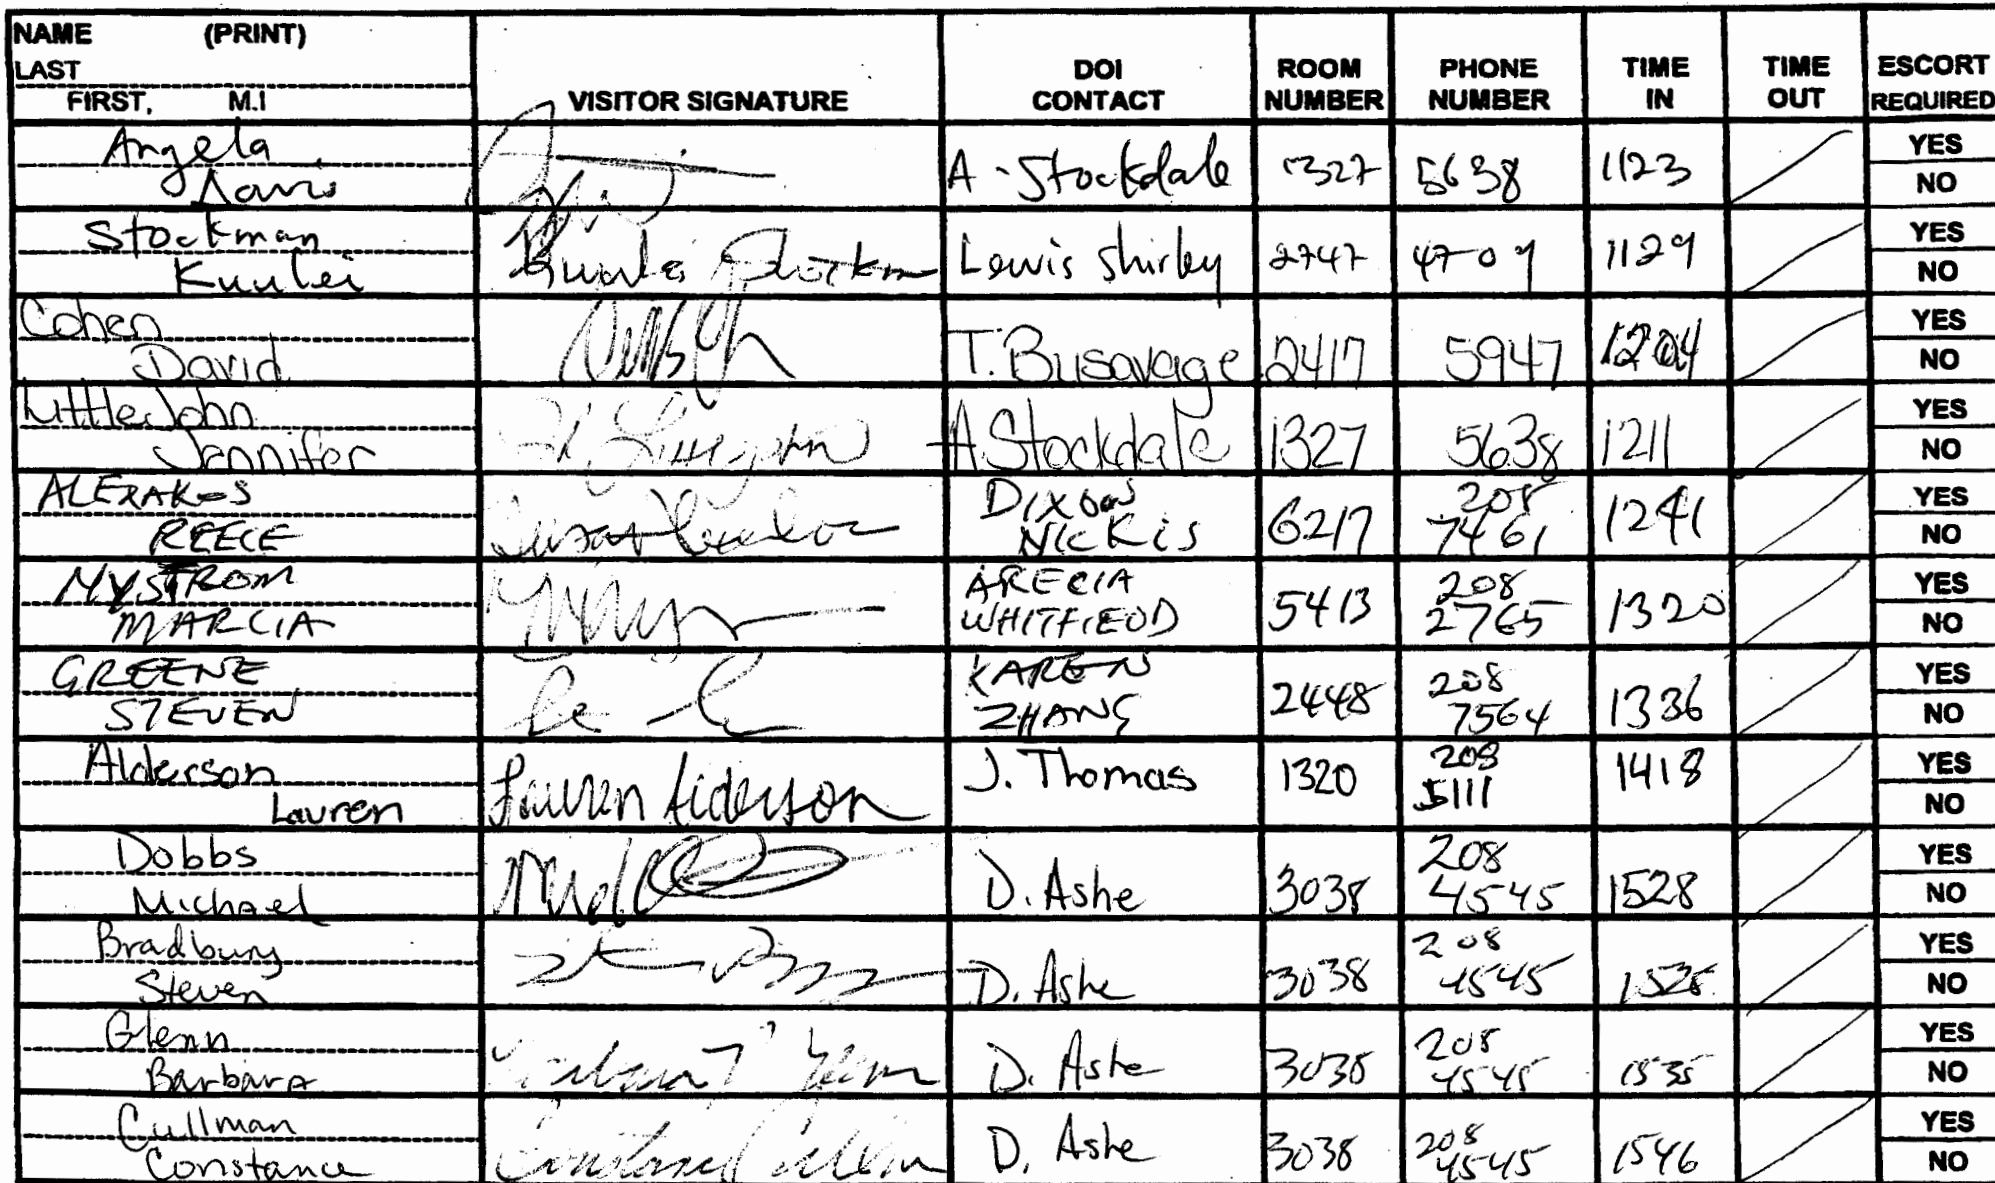 NAME (PRINT)
LAST
FIRST, M.I
VISITOR SIGNATURE
DOI CONTACT
ROOM NUMBER
PHONE NUMBER
TIME IN
TIME OUT
ESCORT REQUIRED
Angela
Davis
A. Stockdale 1327 5638 1123 YES
NO
Stockman
Kuulei
Lewis Shirley 2747 4709 1129 YES
NO
Cohen
David
T. Busavage 2417 5947 1204 YES
NO
LittleJohn
Jennifer
A. Stockdale 1327 5638 1211 YES
NO
ALEXAKOS
REECE
DIXON
NICKIS
6217 208
7461
1241 YES
NO
NYSTROM
MARCIA
ARECIA
WHITFIEOD
5413 208
2765
1320 YES
NO
GREENE
STEVEN
KAREN
ZHANG
2448 208
7564
1336 YES
NO
Alderson
Lauren
Lauren Alderson J. Thomas 1320 208
5111
1418 YES
NO
Dobbs
Michael
D. Ashe 3038 208
4545
1528 YES
NO
Bradbury
Steven
D. Ashe 3038 208
4545
1528 YES
NO
Glenn
Barbara
D. Ashe 3038 208
4545
1535 YES
NO
Cullman
Constance
Constance Cullman D. Ashe 3038 208
4545
1546 YES
NO